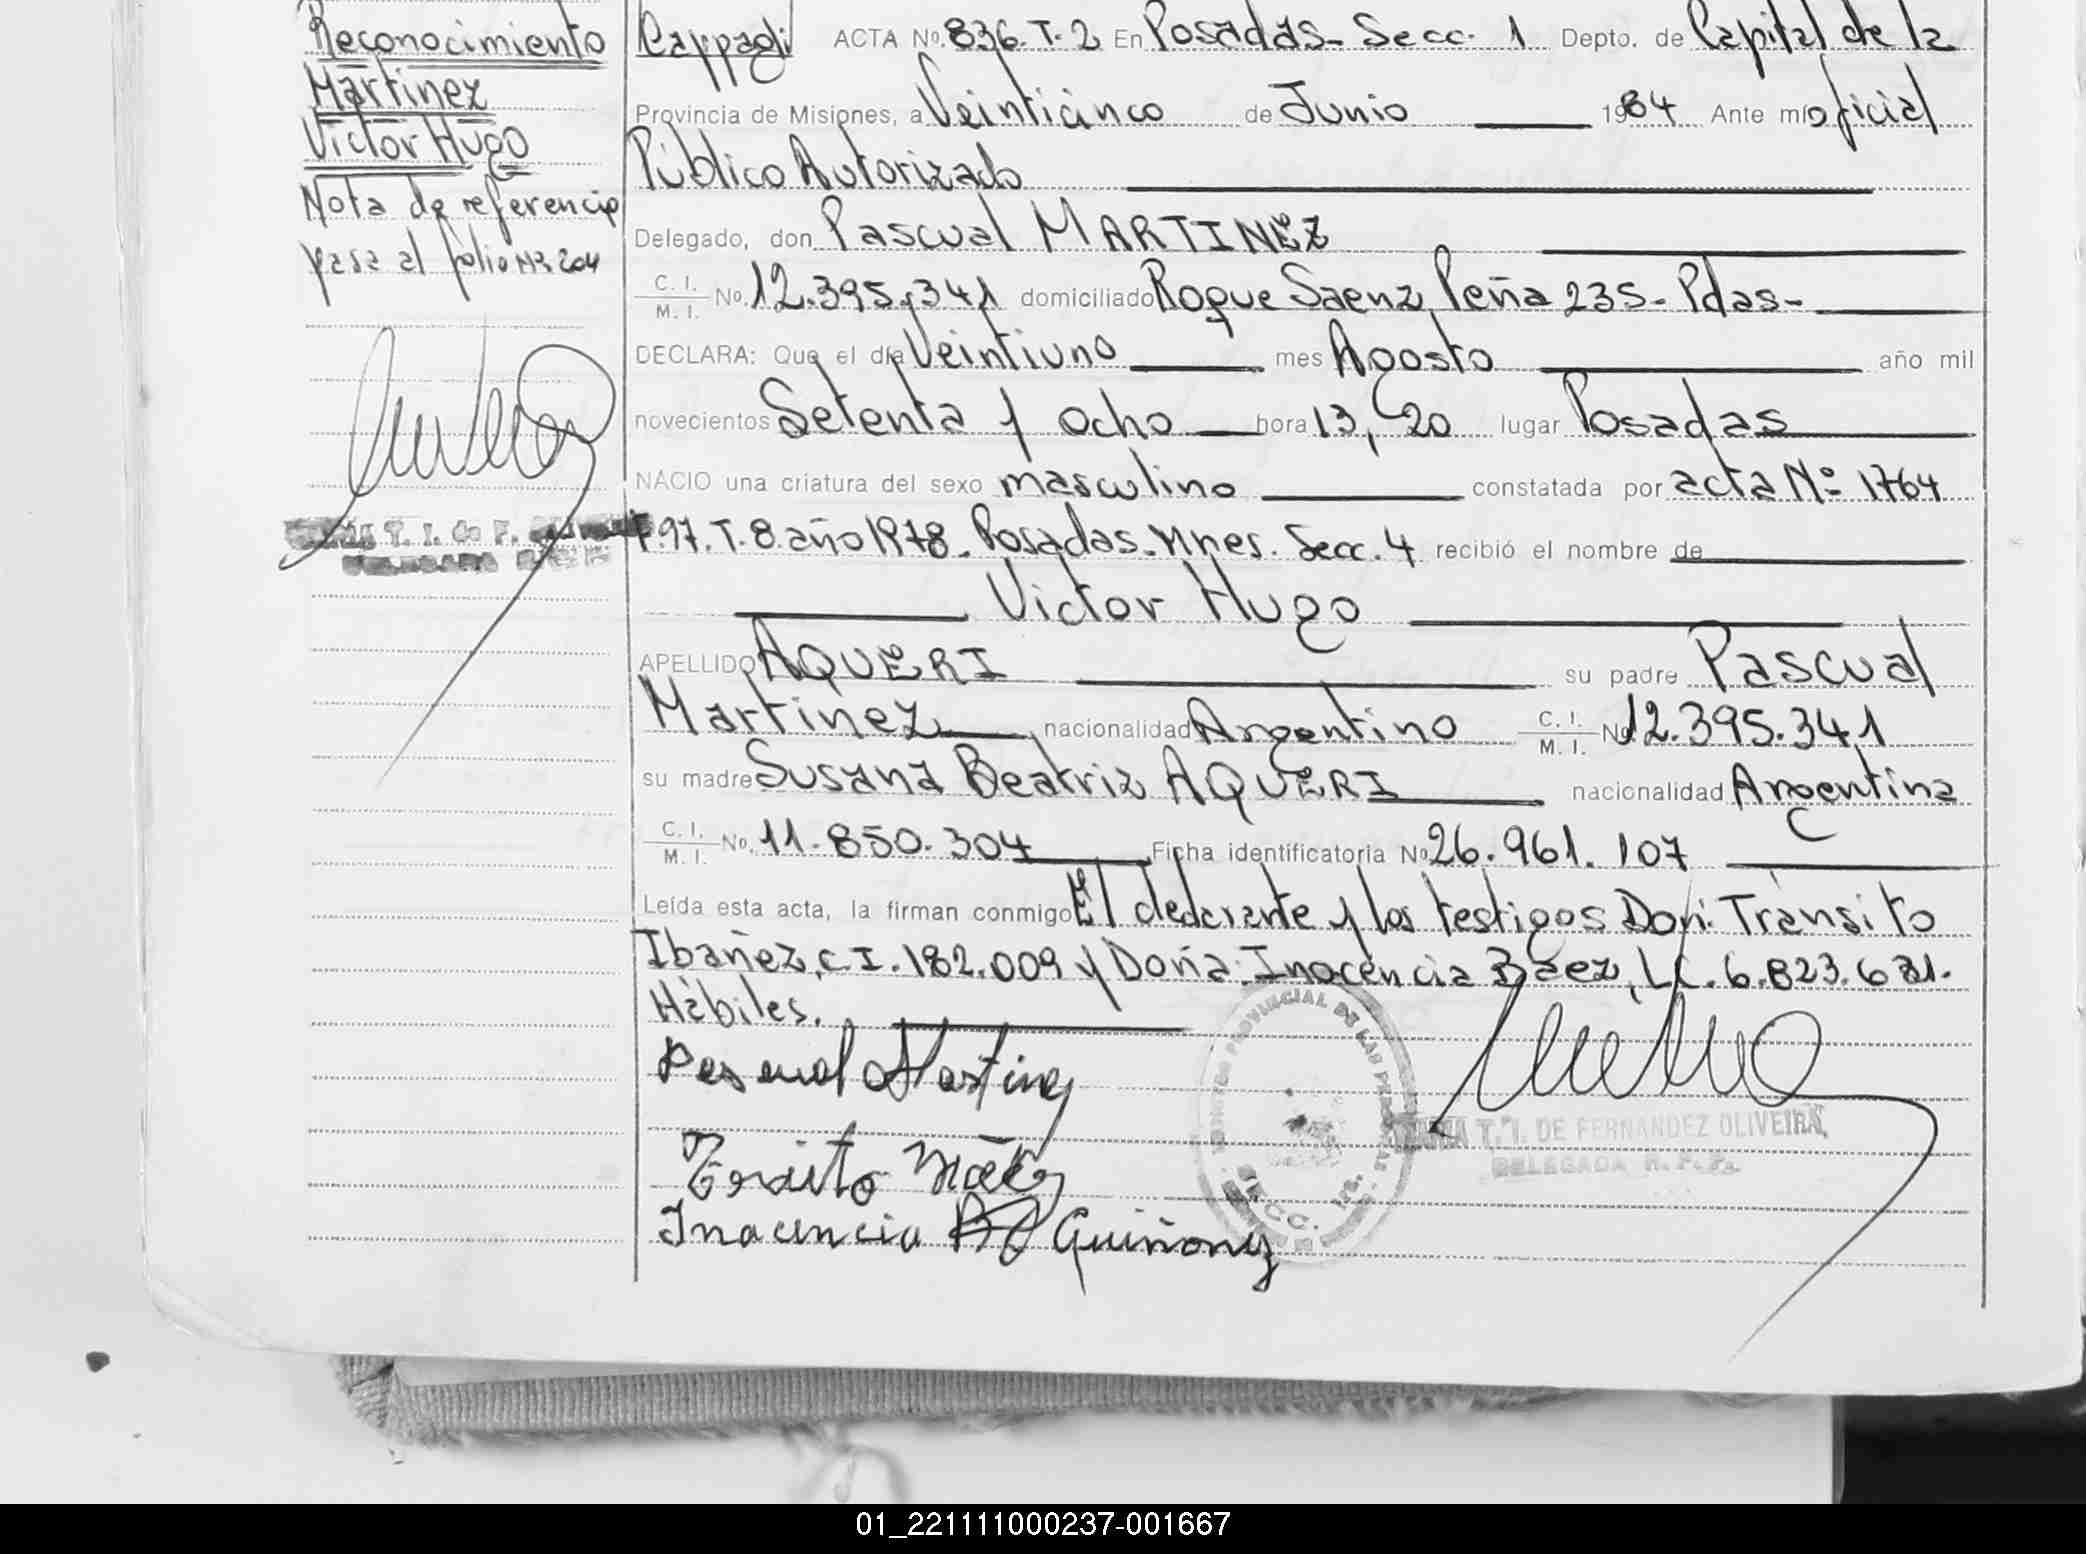 Reconocimiento
Martinez
Victor Hugo
Nota de referencia
pasa al folio Nº 204
ACTA Nº. 836. T. 2 En Posadas - Secc. 1 Depto. de Capital de la
Provincia de Misiones, a Veinticinco de Junio 1984 Ante mí oficial
Público Autorizado
Delegado, don Pascual MARTINEZ
C. I. / M. I. No. 12.395.341 domiciliado Roque Saenz Peña 235 - Pdas -
DECLARA: Que el día Veintiuno mes Agosto año mil
novecientos Setenta y ocho hora 13,20 lugar Posadas
NACIO una criatura del sexo masculino constatada por acta Nº 1764
F. 97. T. 8 año 1978. Posadas - Mnes. Secc. 4 recibió el nombre de
Victor Hugo
APELLIDO AQUERI su padre Pascual
Martinez nacionalidad Argentino C. I. / M. I. No. 12.395.341
su madre Susana Beatriz AQUERI nacionalidad Argentina
C. I. / M. I. No. 11.850.304 Ficha identificatoria No. 26.961.107
Leída esta acta, la firman conmigo El declarante y los testigos Don: Trànsito
Ibañez, C.I. 182.009 y Doña: Inocencia Baez, L.C. 6.823.631.
Hàbiles.
Pascual Martinez
Inacencia Quiñonez
PROVINCIAL DE LAS PERSONAS
SECC.
MARIA T. I. DE FERNANDEZ OLIVEIRA
DELEGADA R. P. P.
01_221111000237-001667